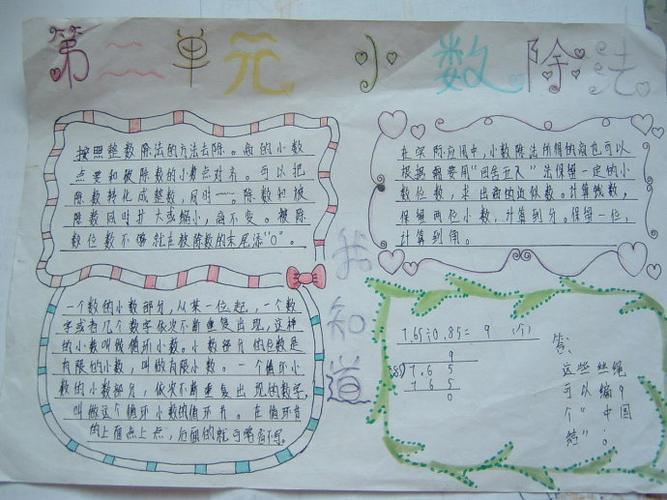 第二单元 小数除法
按照整数除法的方法去除。商的小数
点要和被除数的小数点对齐。可以把
除数转化成整数,同时一。除数和被
除数同时扩大或缩小,商不变。被除
数位数不够就在被除数的末尾添“0”。
在实际应用中,小数除法所得的商也可以
根据需要用“四舍五入”法保留一定的小
数位数,求出商的近似数。计算钱数,
保留两位小数,计算到分。保留一位,
计算到角。
我知道
一个数的小数部分,从某一位起,一个数
字或者几个数字依次不断重复出现,这样
的小数叫做循环小数。小数部分的位数是
有限的小数,叫做有限小数。一个循环小
数的小数部分,依次不断重复出现的数字,
叫做这个循环小数的循环节。在循环节
的上面点上点,后面的就可省略不写。
7.65÷0.85= 9 (个)
9
7.6 5
7 6 5
0
答:
这些丝绳
可以编9
个“中国
结”。